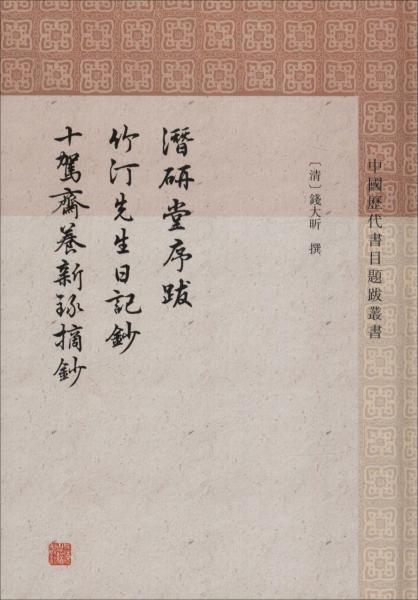 中國歷代書目題跋叢書
〔清〕錢大昕 撰
潛研堂序跋
竹汀先生日記鈔
十駕齋養新錄摘鈔